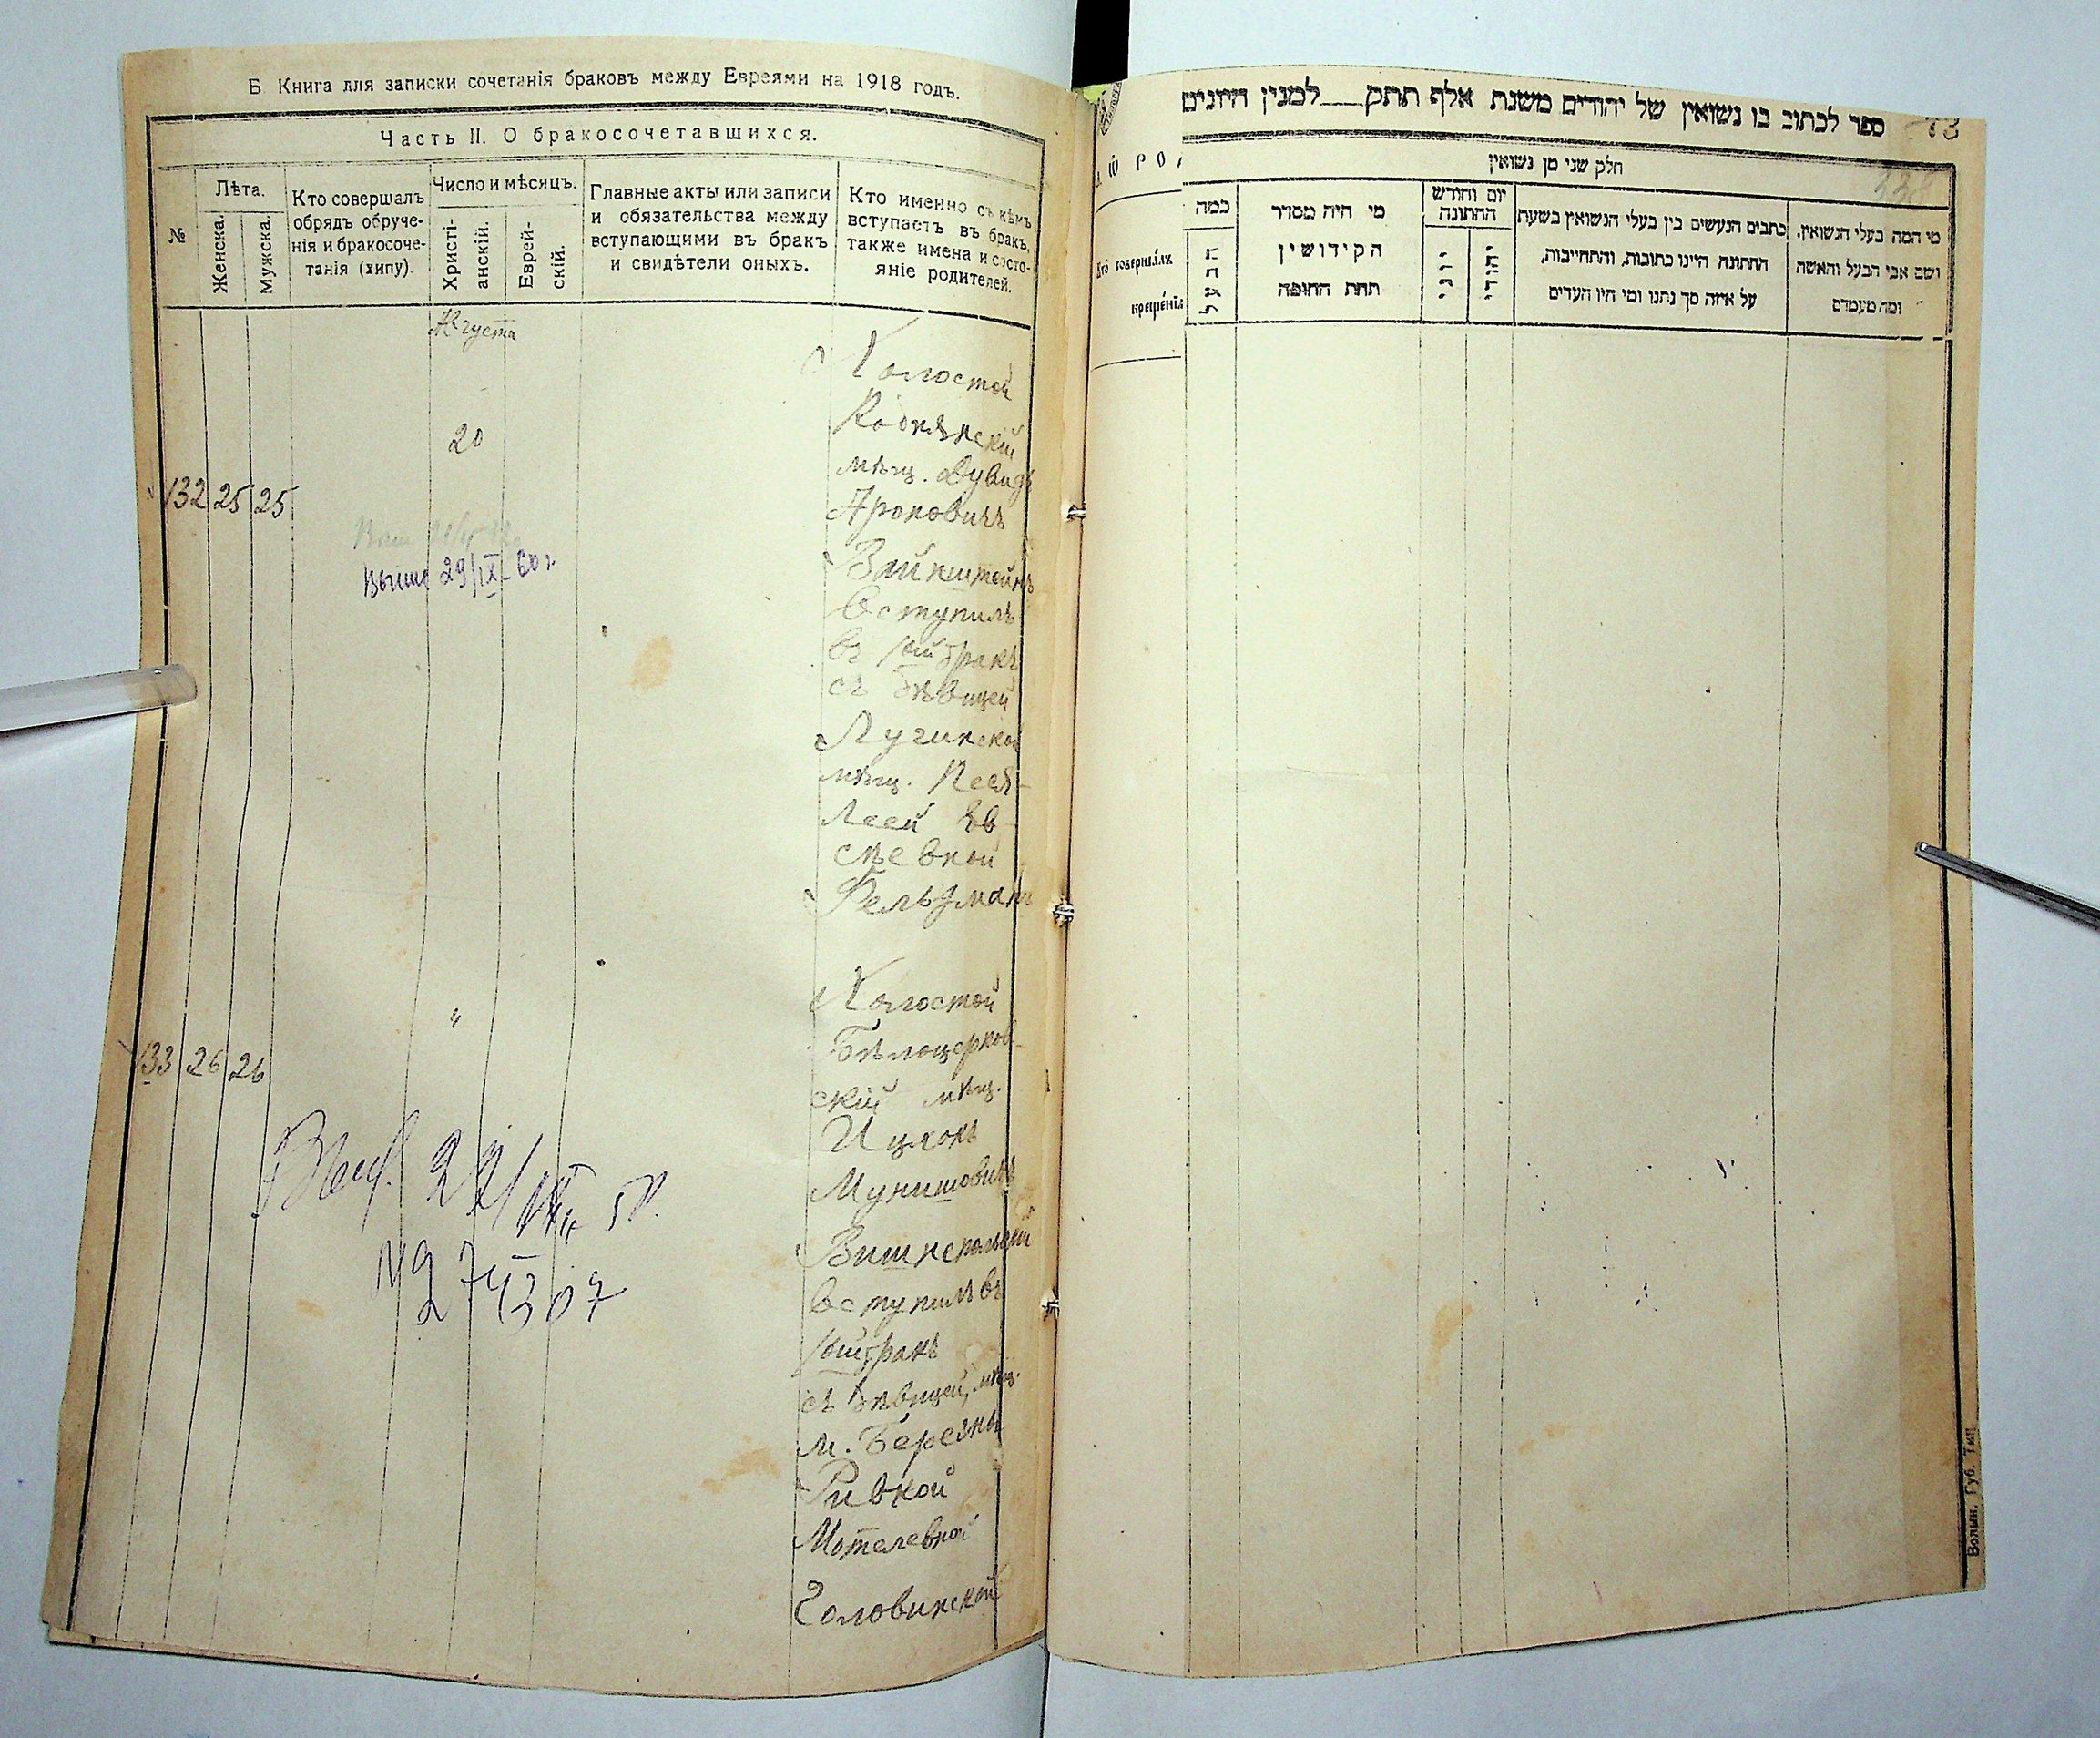 Б Книга для записки сочетанія браковъ между Евреями на 1918 годъ.
Часть II. О бракосочетавшихся.
№
Лѣта.
Женска.
Мужска.
Кто совершалъ
обрядъ обруче-
нія и бракосоче-
танія (хипу).
Число и мѣсяцъ.
Христі-
анскій.
Еврей-
скій.
Главные акты или записи
и обязательства между
вступающими въ бракъ
и свидѣтели оныхъ.
Кто именно съ кѣмъ
вступаетъ въ бракъ,
также имена и состо-
яніе родителей.
Августа
20
132 25 25
Холостой
мѣщ. Дувидъ
Ароновичъ
Вайнштейнъ
Вступилъ
въ 1ый бракъ
съ дѣвицей
Лугинской
мѣщ. Песя-
Леей Ев
сѣевной
Фельдманъ
29/IX-60 г.
"
133 26 26
Холостой
Бѣлоцерков-
скій мѣщ.
Ицхокъ
Мунишовичъ
Вишнепольскій
вступилъ въ
1ый бракъ
съ дѣвицей, мѣщ.
м. Березны
Ривкой
Мотелевной
Головинской
№
274307
ספר לכתוב בו נשואין של יהודים משנת אלף תתק___למנין היונים
73
338
חלק שני מן נשואין
כמה
הבעל
מי היה מסדר
הקידושין
תחת החופה
יום וחודש
החתונה
יוני
יהודי
כתבים הנעשים בין בעלי הנשואין בשעת
החתונה היינו כתובות, והתחייבות,
על איזה סך נתנו ומי היו העדים
מי המה בעלי הנשואין,
ושם אבי הבעל והאשה
ומה מעמדם
Кто совершалъ
крещенія
Волын. Губ. Тип.